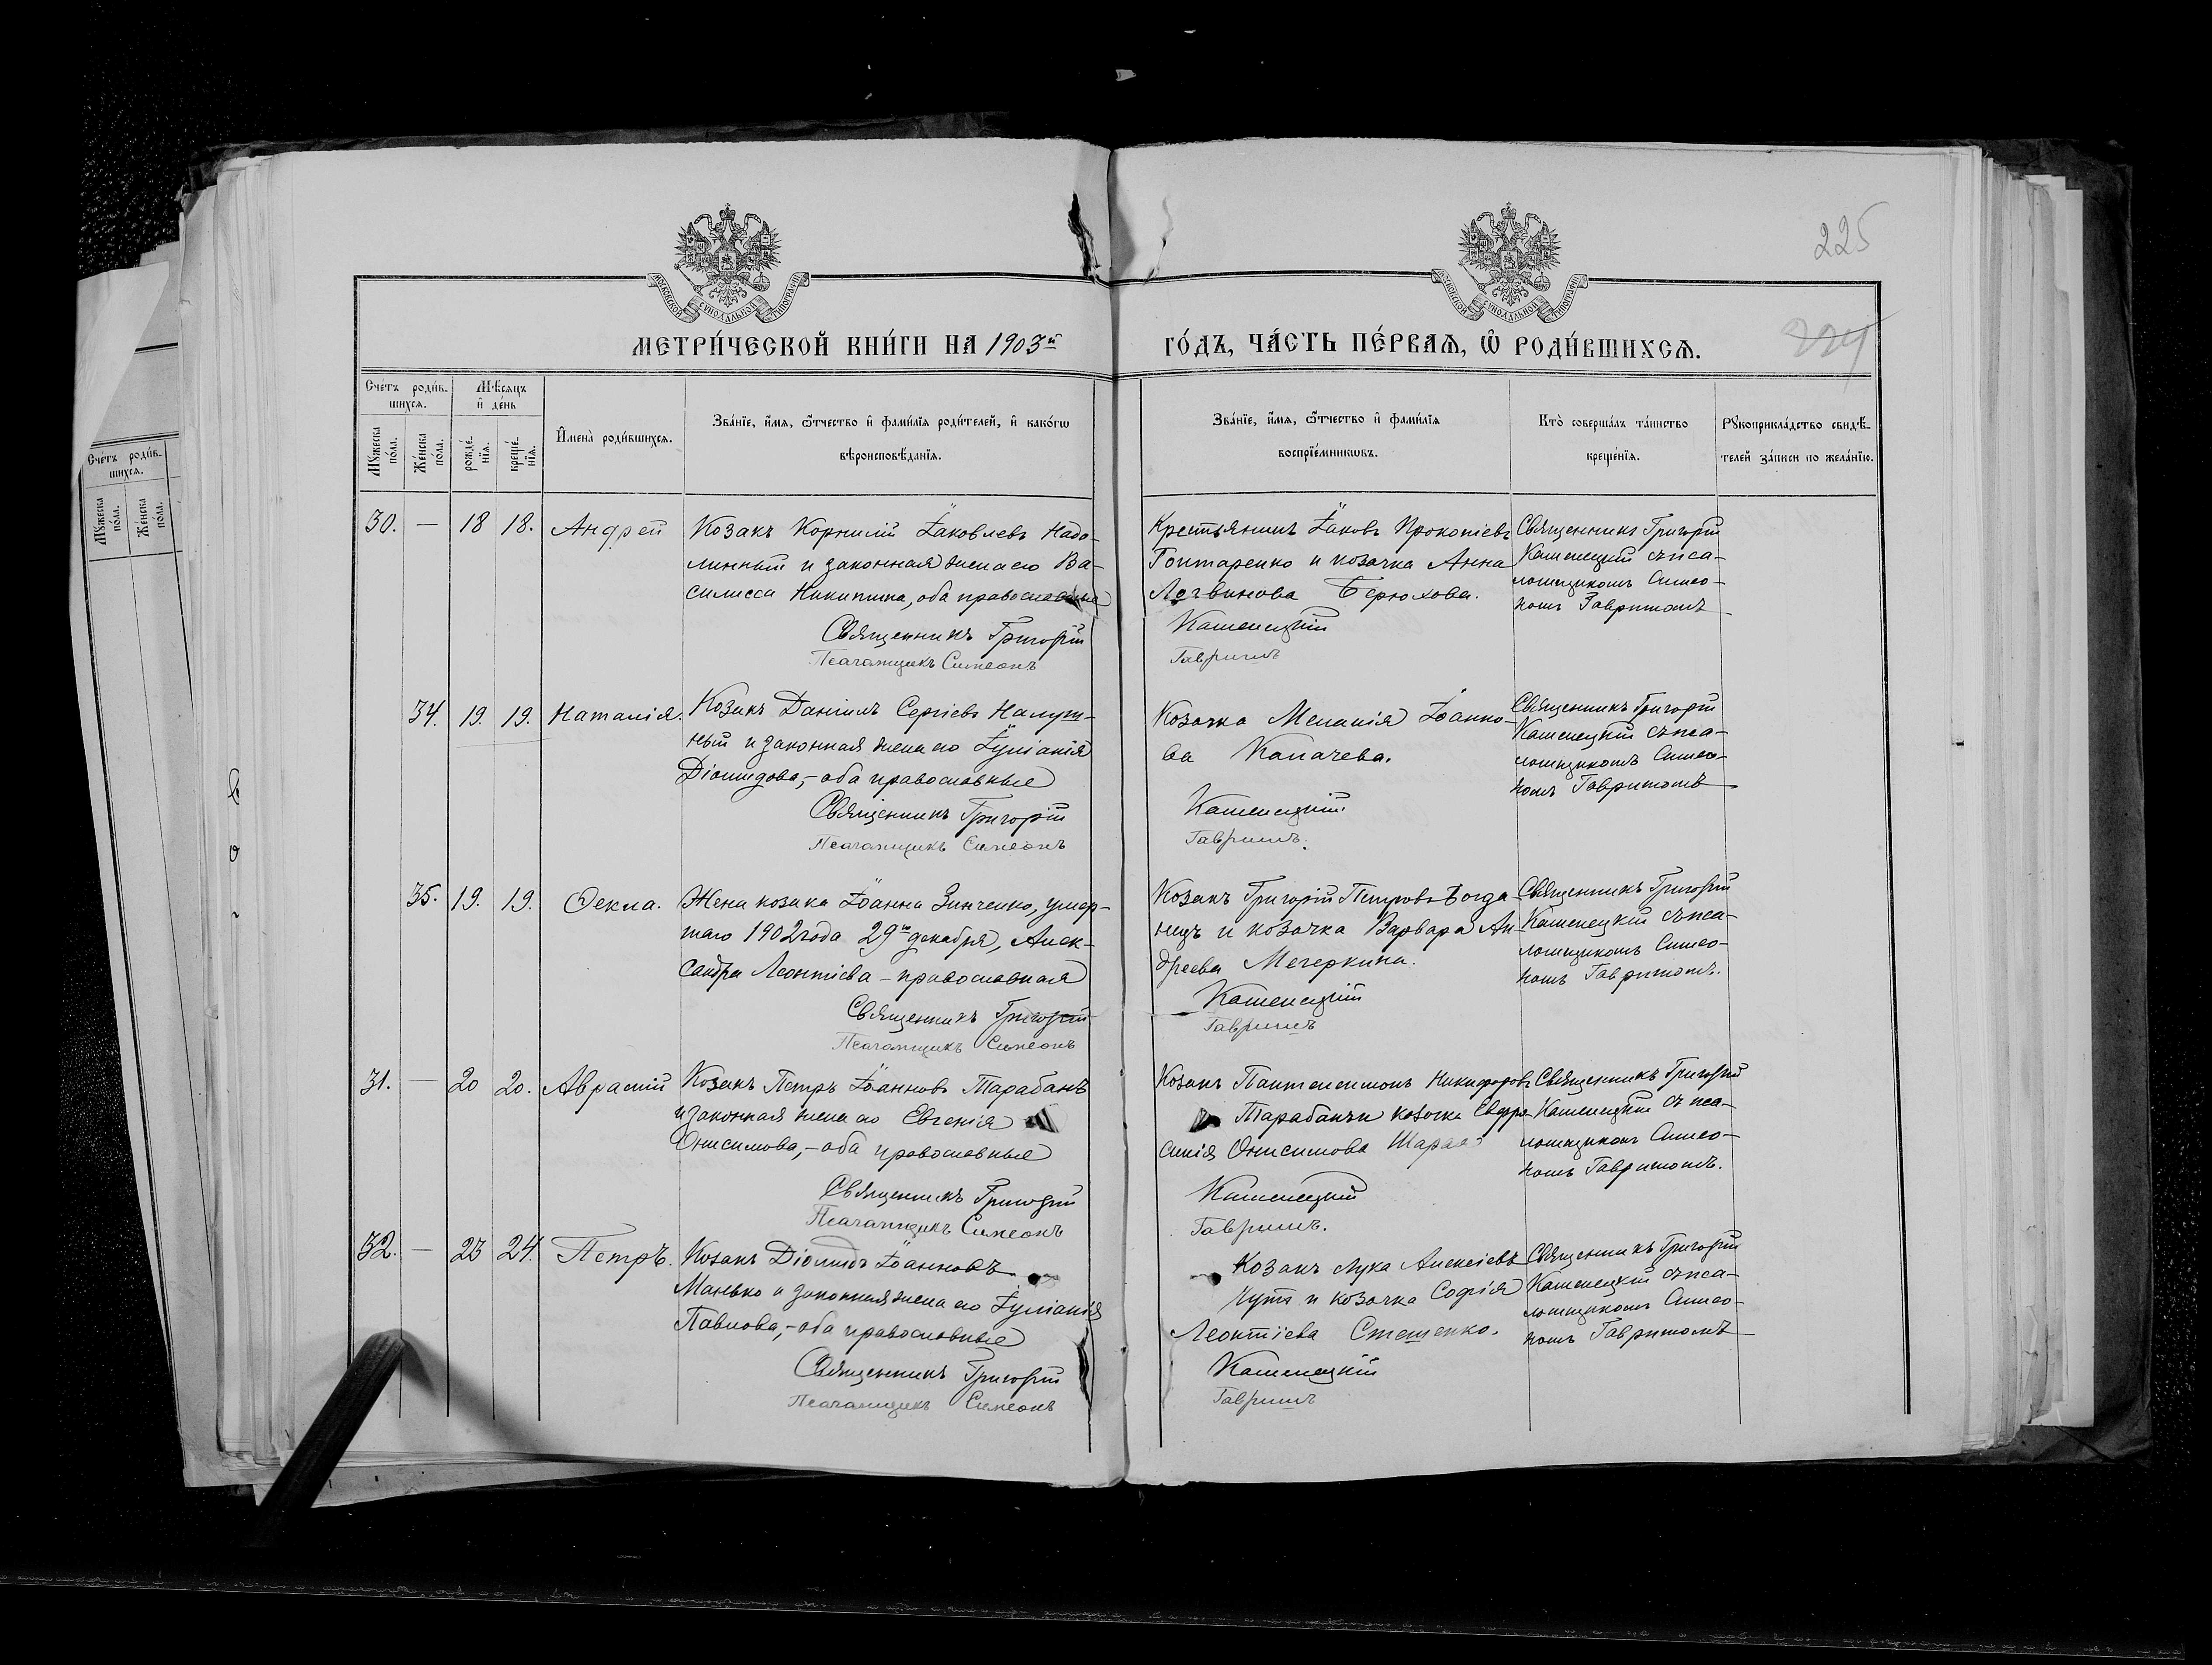 225
224
МОСКОВСКОЙ СѴНОДАЛЬНОЙ ТИПОГРАФІИ
МОСКОВСКОЙ СѴНОДАЛЬНОЙ ТИПОГРАФІИ
МЕТРИ́ЧЕСКОЙ КНИ́ГИ НА 1903й
ГО́ДЪ, ЧА́СТЬ ПЕ́РВАѦ, Ѡ҆ РОДИ́ВШИХСѦ.
Сче́тъ роди́в-
шихсѧ.
Мѣ́сѧцъ
и҆ де́нь
Мꙋ́жеска
по́ла.
Же́нска
по́ла.
рожде́-
нїѧ.
креще́-
нїѧ.
И҆мена̀ роди́вшихсѧ.
Зва́нїе, и҆́мѧ, ѻ҆́тчество и҆ фами́лїѧ роди́телей, и҆ како́гѡ
вѣроисповѣ́данїѧ.
Зва́нїе, и҆́мѧ, ѻ҆́тчество и҆ фами́лїѧ
воспрїе́мникѡвъ.
Кто̀ соверша́лъ та́инство
креще́нїѧ.
Рꙋкоприкла́дство свидѣ́-
телей за́писи по жела́нїю.
Сче́тъ роди́в-
шихсѧ.
Мꙋ́жеска
по́ла.
Же́нска
по́ла.
30. — 18 18. Андрей
Козакъ Корнилій Іаковлевъ Надо-
линный и законная жена его Ва-
силисса Никитина, оба православные
Священникъ Григорій
Псаломщикъ Симеонъ
Крестьянинъ Іаковъ Прокопіевъ
Гонтаренко и козачка Анна
Логвинова Берюхова.
Каменецкій
Гавришъ
Священникъ Григорій
Каменецкій съ пса-
ломщикомъ Симео-
номъ Гавришомъ
34. 19. 19. Наталія.
Козакъ Даніилъ Сергіевъ Налуж-
ный и законная жена его Іуліанія
Діомидова,- оба православные
Священникъ Григорій
Псаломщикъ Симеонъ
Козачка Меланія Іоанно-
ва Капачева.
Каменецкій
Гавришъ.
Священникъ Григорій
Каменецкій съ пса-
ломщикомъ Симео-
номъ Гавришомъ
35. 19. 19. Ѳекла.
Жена козака Іоанна Зинченко, умер-
шаго 1902 года 29го декабря, Алек-
сандра Леонтіева - православная
Священникъ Григорій
Псаломщикъ Симеонъ
Козакъ Григорій Петровъ Богда-
нецъ и козачка Варвара Ан-
дреева Мечеркина.
Каменецкій
Гавришъ
Священникъ Григорій
Каменецкій съ пса-
ломщикомъ Симео-
номъ Гавришомъ.
31. — 20 20. Авраамій
Козакъ Петръ Іоанновъ Тарабанъ
и законная жена его Евгенія
Онисимова,- оба православные
Священникъ Григорій
Псаломщикъ Симеонъ
Козакъ Пантелеимонъ Никифоровъ
Тарабанъ и козачка Евфро-
синія Онисимова
Каменецкій
Гавришъ.
Священникъ Григорій
Каменецкій съ пса-
ломщикомъ Симео-
номъ Гавришомъ.
32. — 23 24. Петръ.
Козакъ Діомидъ Іоанновъ
Манько и законная жена его Іуліанія
Павлова,- оба православные
Священникъ Григорій
Псаломщикъ Симеонъ
Козакъ Лука Алексіевъ
и козачка Софія
Леонтіева Стешенко.
Каменецкій
Гавришъ
Священникъ Григорій
Каменецкій съ пса-
ломщикомъ Симео-
номъ Гавришомъ